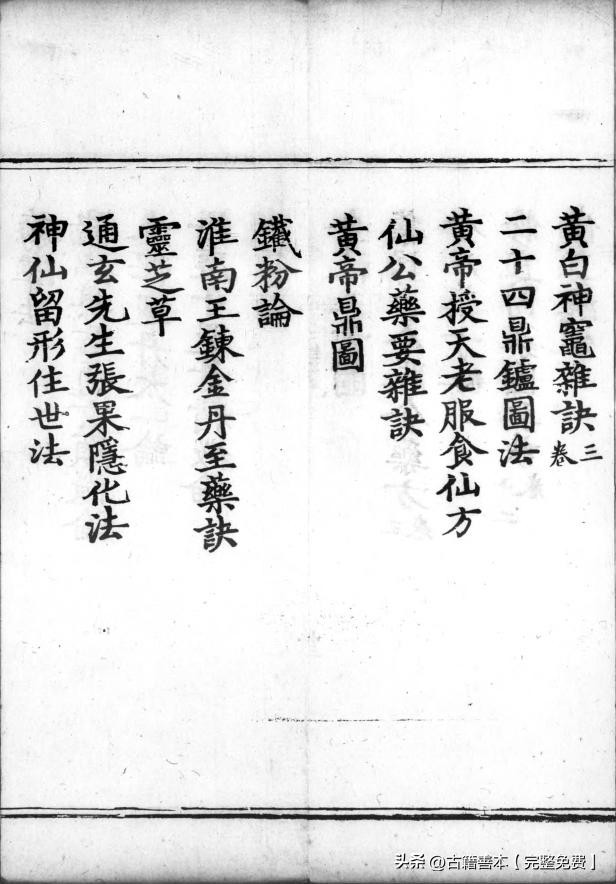 黄白神竈雜訣三卷
二十四鼎鑪圖法
黄帝授天老服食仙方
仙公藥要雜訣
黄帝鼎圖
鐵粉論
淮南王鍊金丹至藥訣
靈芝草
通玄先生張果隱化法
神仙留形住世法
头条 @古籍善本【完整免费】